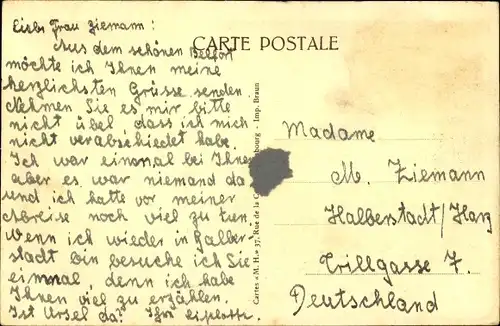 Liebe Frau Ziemann!
CARTE POSTALE
Aus dem schönen Belfort
möchte ich Ihnen meine
herzlichsten Grüsse senden.
Nehmen Sie es mir bitte
nicht übel, dass ich mich
nicht verabschiedet habe.
Ich war einmal bei Ihnen
aber es war niemand da
und ich hatte vor meiner
Abreise noch viel zu tun.
Wenn ich wieder in Halber-
stadt bin besuche ich Sie
einmal, denn ich habe
Ihnen viel zu erzählen.
Ist Ursel da? Ihre
Cartes «M. H.» 37, Rue de la - Imp. Braun
Madame
M. Ziemann
Halberstadt/Harz
Trillgasse 7.
Deutschland